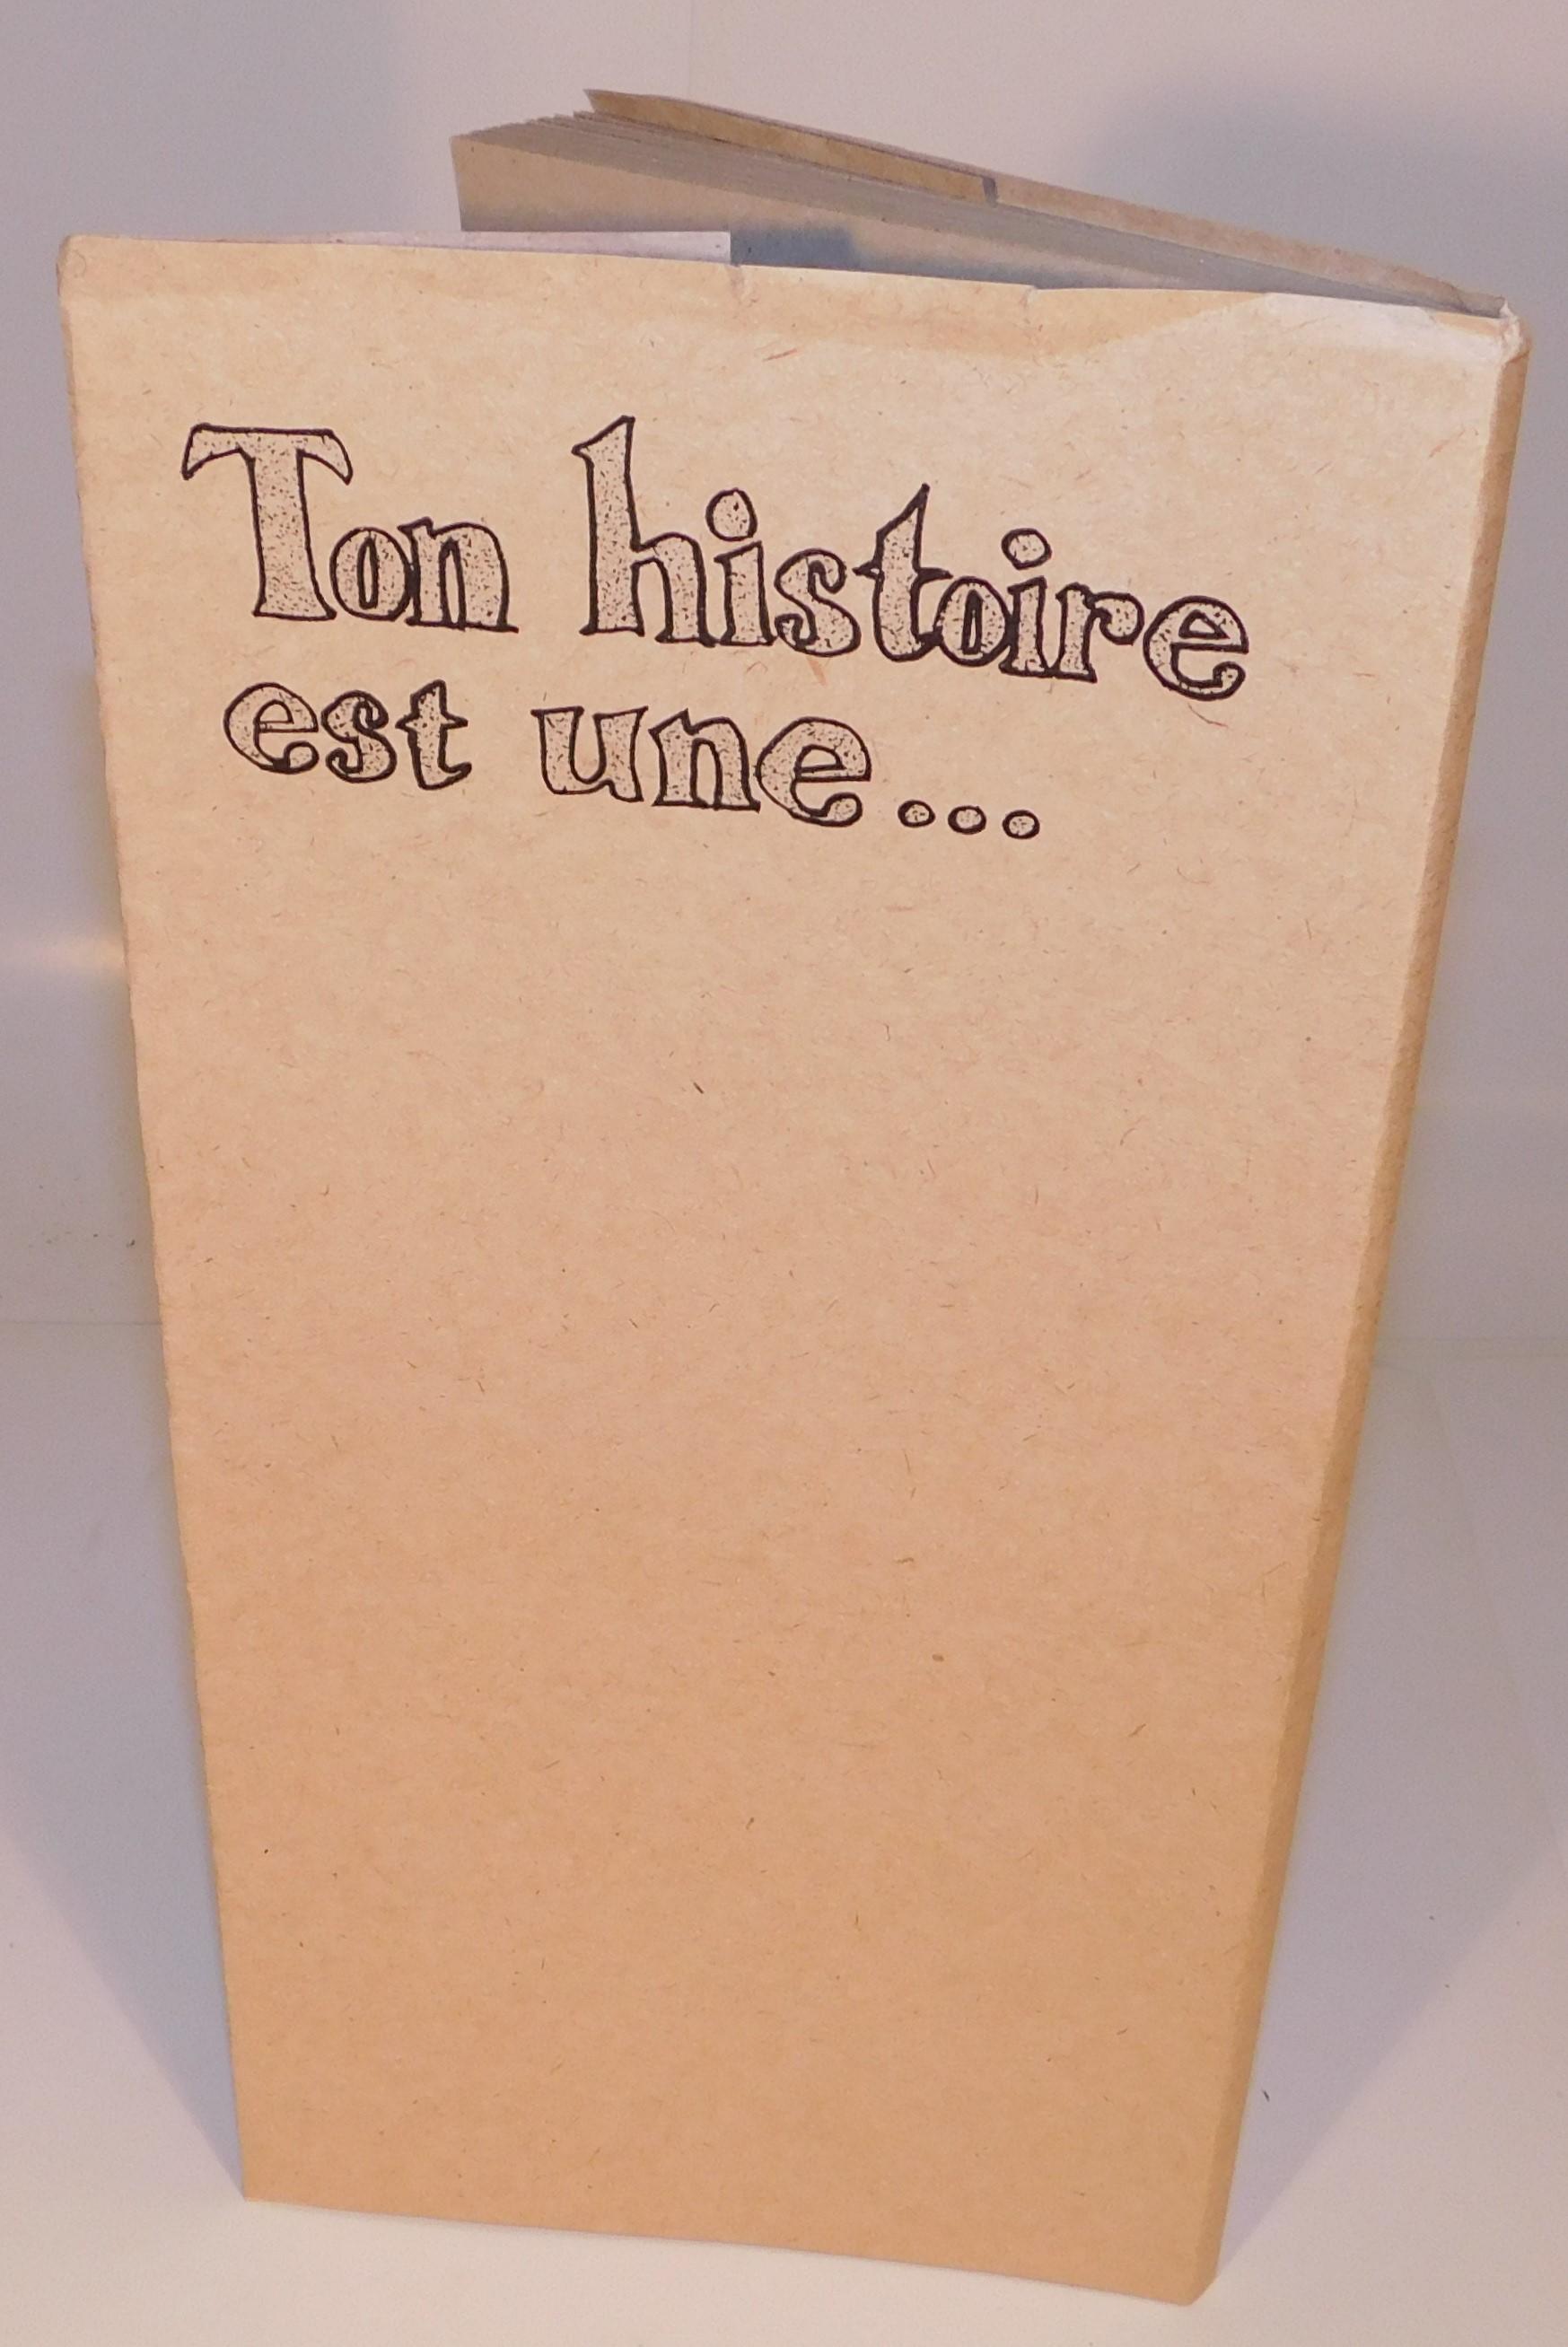 Ton histoire
est une...